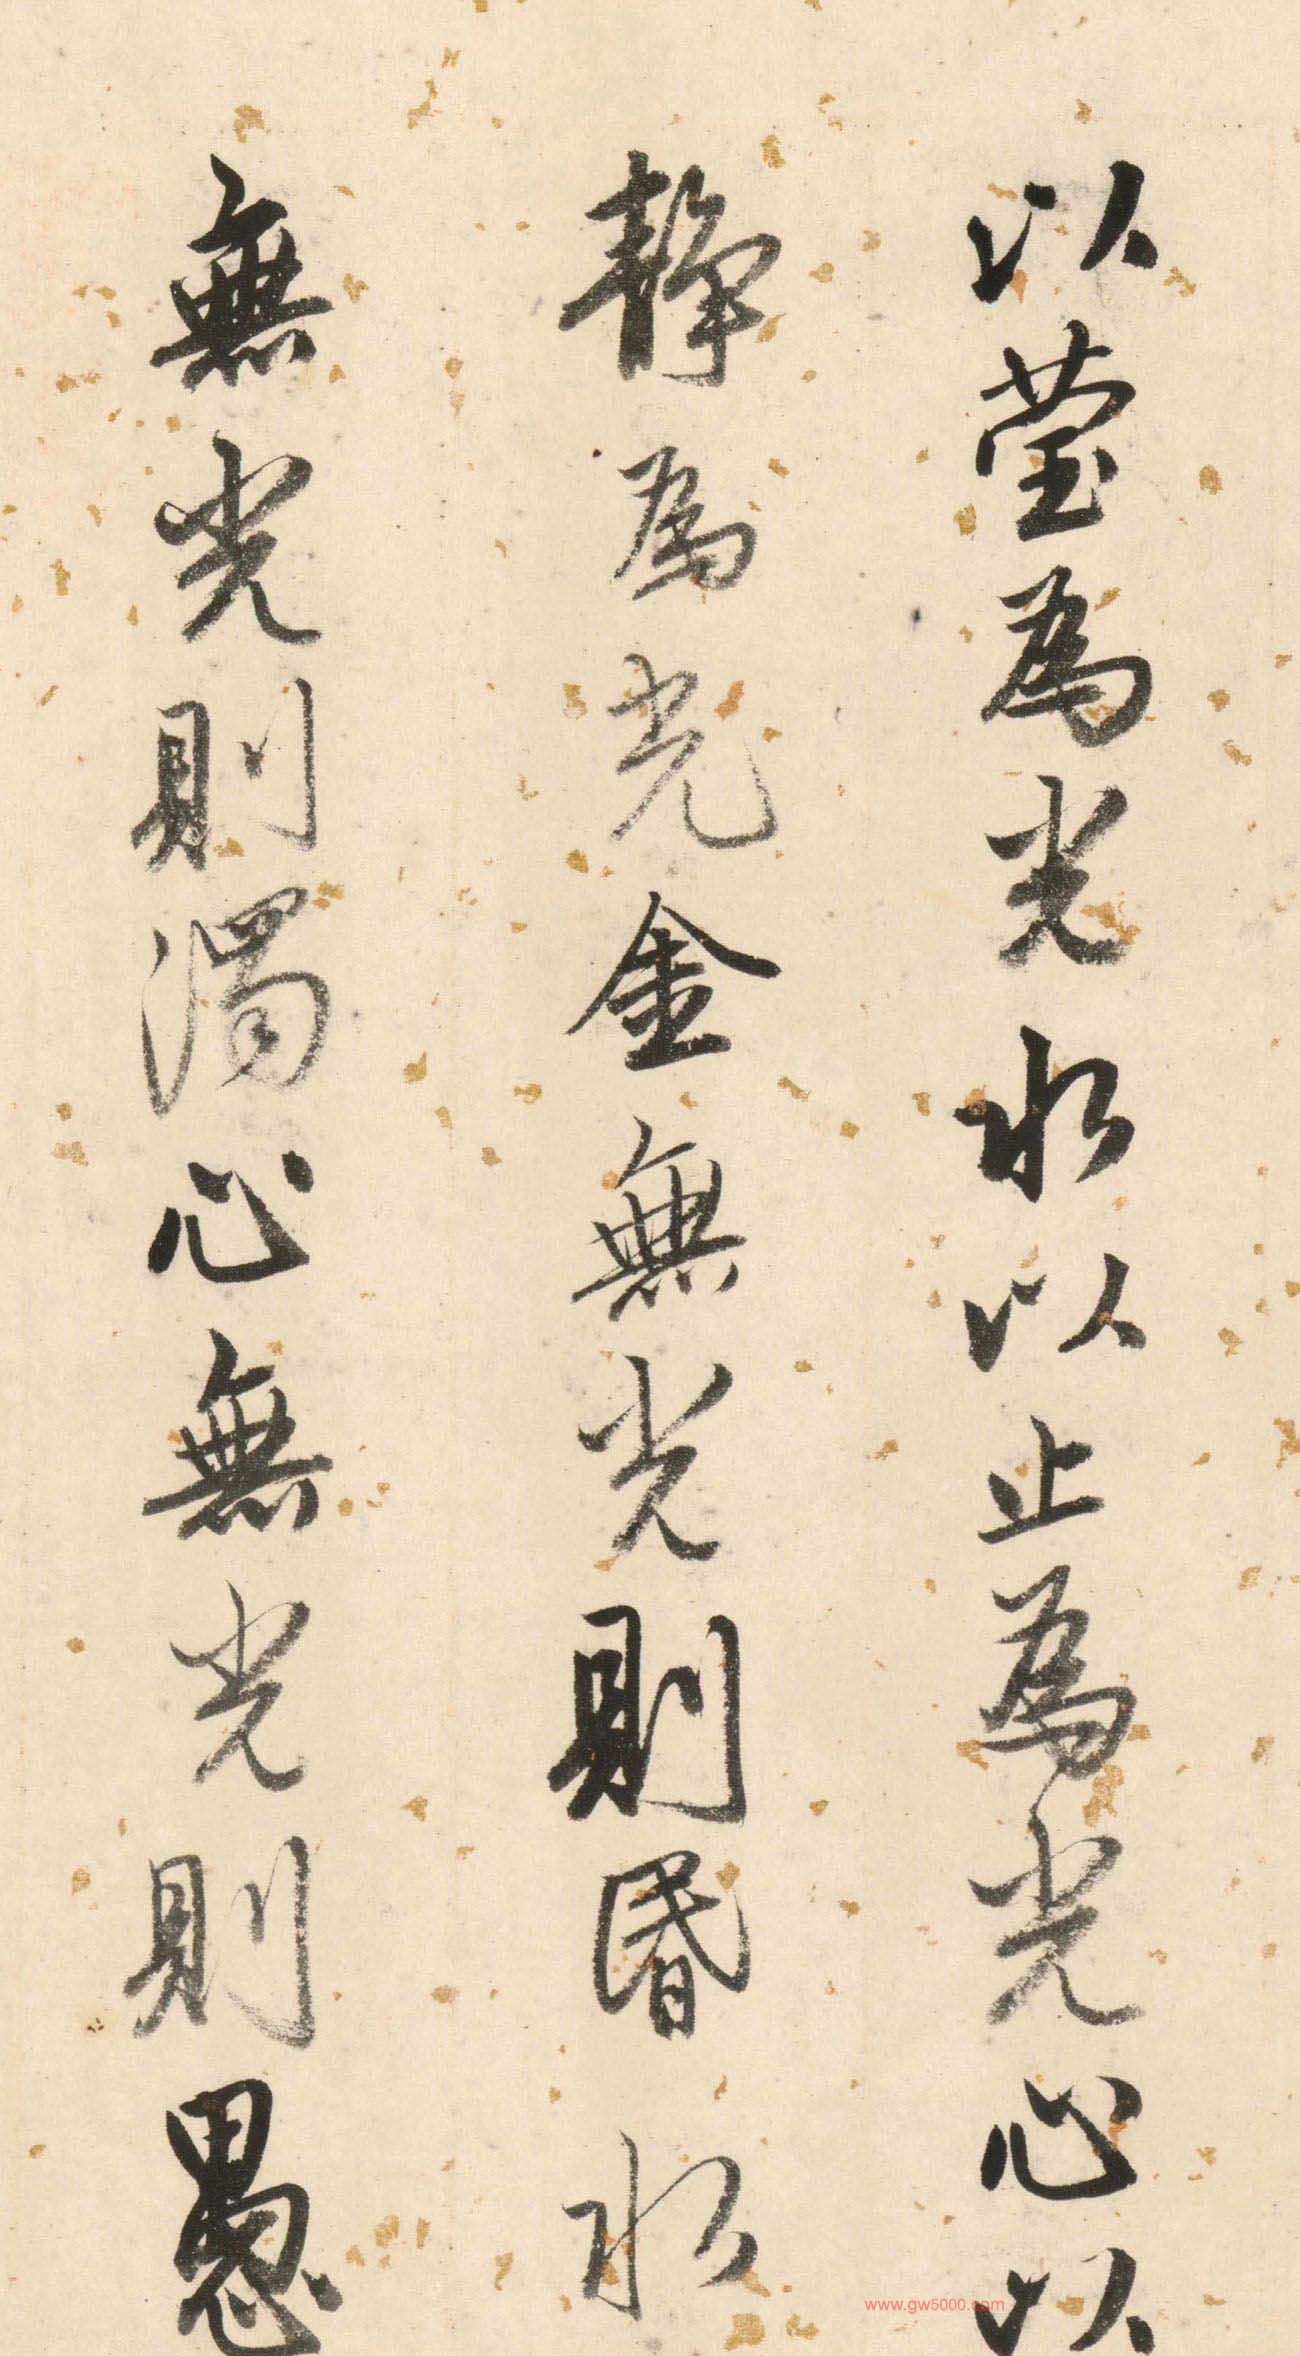 以瑩為光水以止為光心以
靜為光金無光則昬水
無光則濁心無光則愚
www.gw5000.com